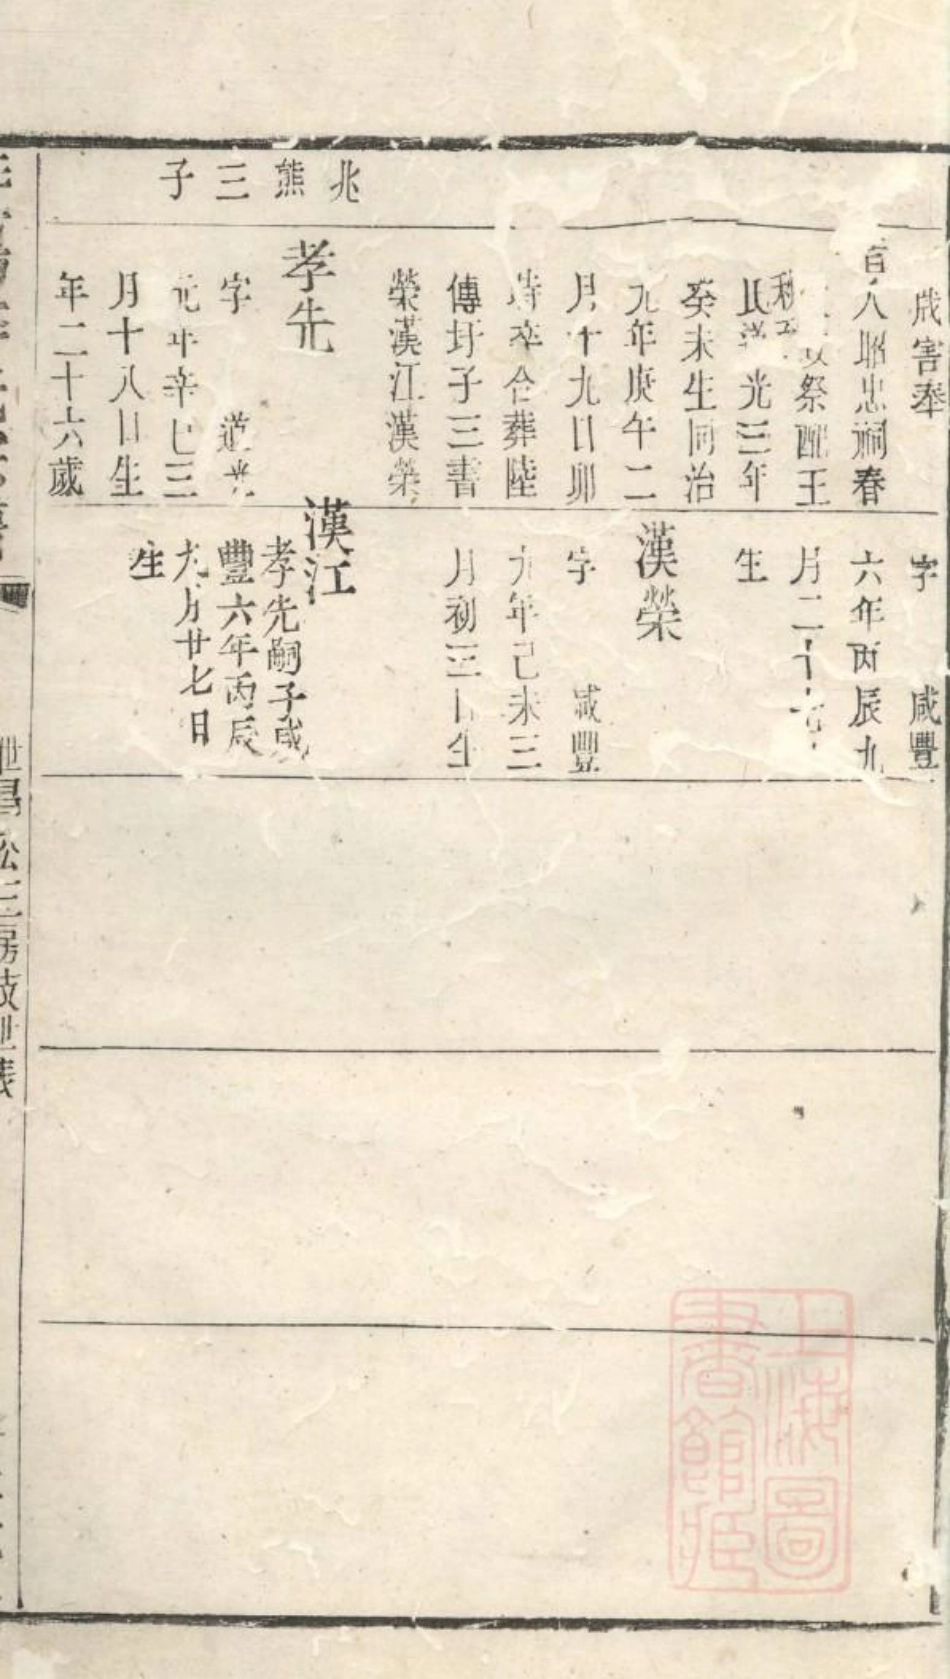 兆
熊
三
子
戕害奉
旨入昭忠祠春
祭配王
氏道光三年
癸未生同治
九年庚午二
月十九日卯
時卒合葬陸
傳圩子三書
榮漢江漢榮
孝先
字 道光
元年辛巳三
月十八日生
年二十六歲
字 咸豐
六年丙辰九
月二十七
生
漢榮
字 咸豐
九年己未三
月初三日生
漢江
孝先嗣子咸
豐六年丙辰
九月廿七日
生
世昌公三房技世表
上海圖
書館藏